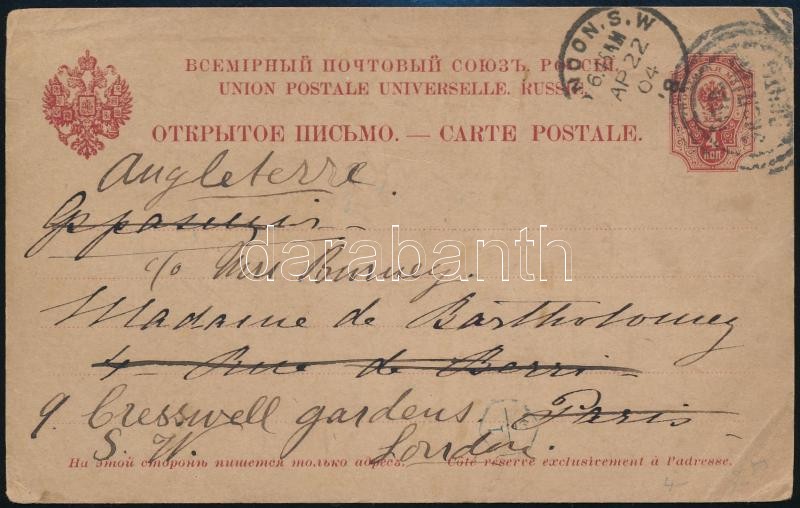 ВСЕМІРНЫЙ ПОЧТОВЫЙ СОЮЗЪ. РОССІЯ
UNION POSTALE UNIVERSELLE. RUSSIE
ОТКРЫТОЕ ПИСЬМО. — CARTE POSTALE.
NDON. S.W
AP 22
04
4
КОП
Angleterre.
c/o Mrs Burney.
Madame de Bartholomey
4 Rue de Berri
9. Cresswell gardens Paris
S. W. London.
На этой сторонѣ пишется только адресъ. Côté réservé exclusivement à l'adresse.
darabanth